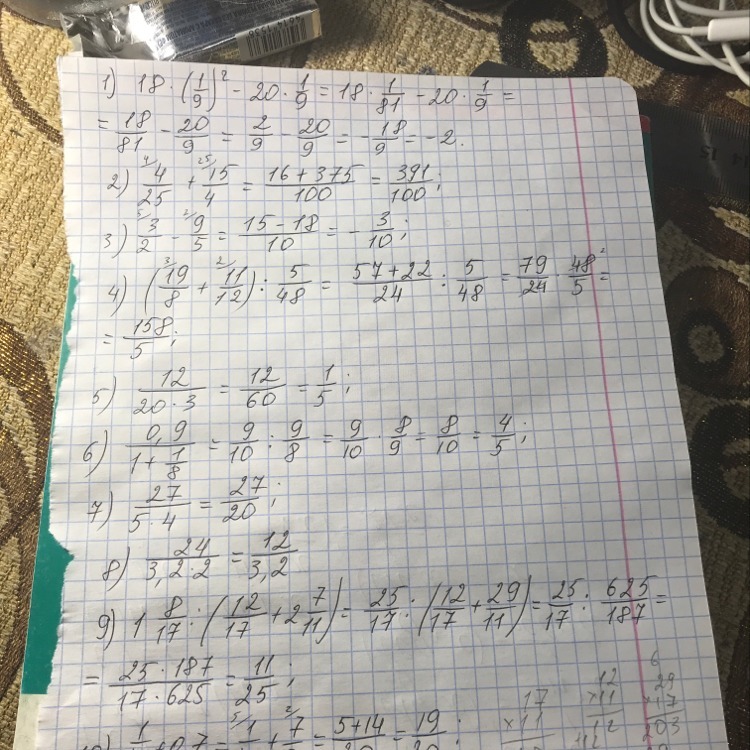 1) 18 · (1/9)² − 20 · 1/9 = 18 · 1/81 − 20 · 1/9 =
= 18/81 − 20/9 = 2/9 − 20/9 = − 18/9 = −2.
2) ⁴/ 4/25 + ²⁵/ 15/4 = (16 + 375)/100 = 391/100;
3) ⁵/ 3/2 − ²/ 9/5 = (15 − 18)/10 = − 3/10;
4) (³/ 19/8 + ²/ 11/12) : 5/48 = (57 + 22)/24 : 5/48 = 79/24 · 48²/5 =
= 158/5;
5) 12/(20 · 3) = 12/60 = 1/5;
6) 0,9/(1 + 1/8) = 9/10 : 9/8 = 9/10 · 8/9 = 8/10 = 4/5;
7) 27/(5 · 4) = 27/20;
8) 24/(3,2 · 2) = 12/3,2
9) 1 8/17 : (12/17 + 2 7/11) = 25/17 : (12/17 + 29/11) = 25/17 : 625/187 =
= (25 · 187)/(17 · 625) = 11/25;
17
×11
12
×11
12
6
29
×17
203